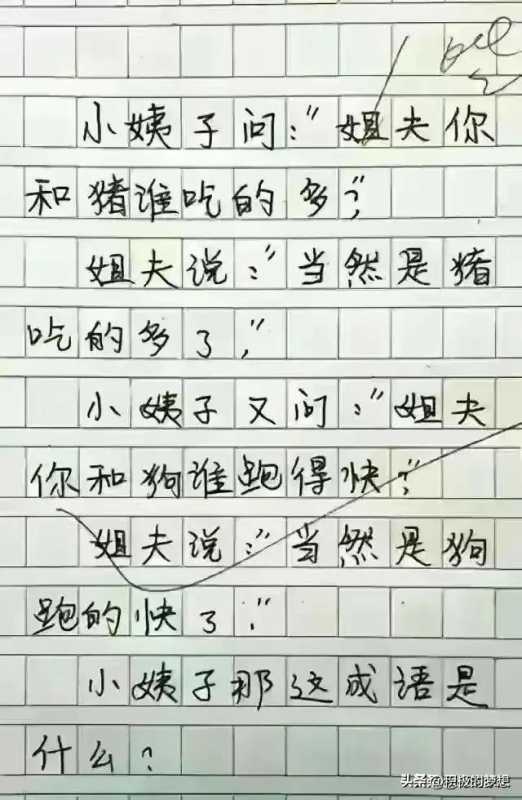 小姨子问:"姐夫你
和猪谁吃的多?"
姐夫说:"当然是猪
吃的多了,"
小姨子又问:"姐夫
你和狗谁跑得快?"
姐夫说:"当然是狗
跑的快了."
小姨子那这成语是
什么?
头条@积极的梦想